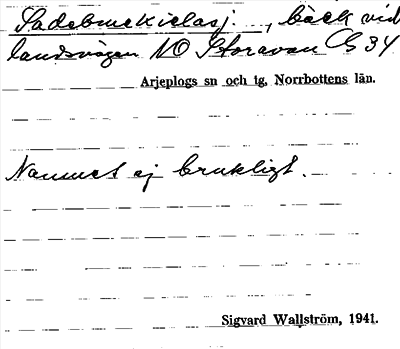 Sadebmekielasj, bäck vid
landsvägen NO Storavan G 34
Arjeplogs sn och tg, Norrbottens län.
Namnet ej brukligt.
Sigvard Wallström, 1941.